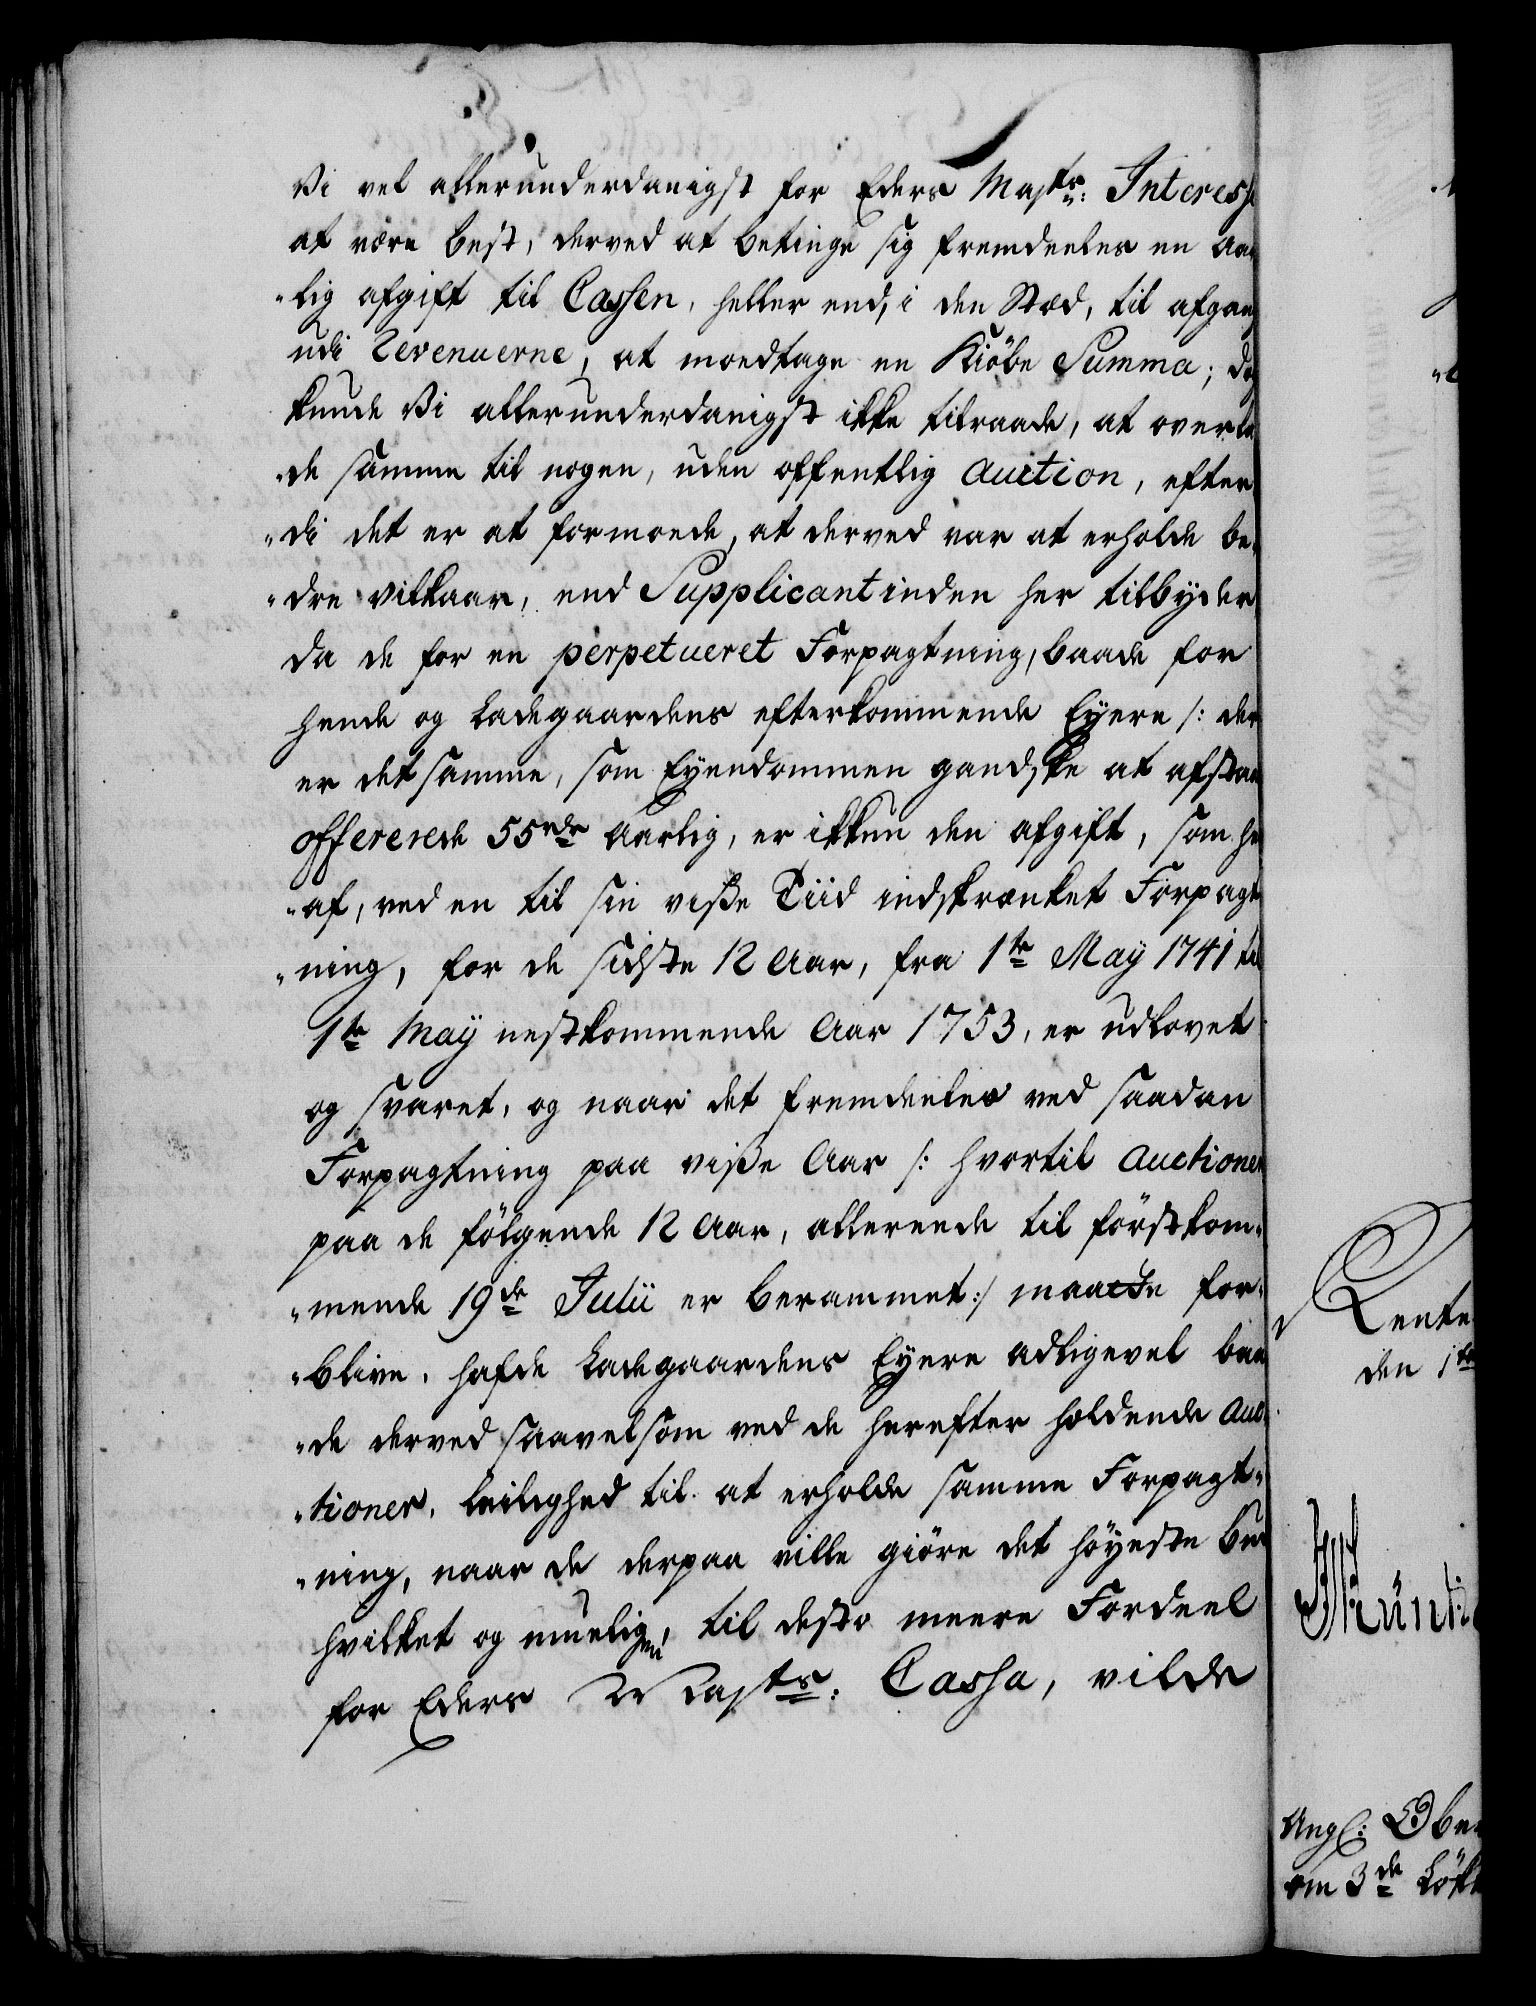 Vi vel allerunderdanigst for Eders Majts: Interesse
at være best, derved at betinge sig fremdeeles en aar
"lig afgift til Cassen, heller end, i den Stæd, til afgang
udi Revenuerne, at modtage en Kiöbe Summa; dog
kunde Vi allerunderdanigst ikke tilraade, at overla
"de samme til nogen, uden offentlig Auction, efter
"di det er at formode, at derved var at erholde be,
"dre vilkaar, end Supplicantinden her tilbyder
da de for en perpetueret Forpagtning, baade for
hende og Ladegaardens efterkommende Eyere /: der
er det samme, som Eyendommen gandske at afstaa
offererede 55 rdr Aarlig, er ikkun den afgift, som her
"af, ved en til sin visse Tiid indskrænket Forpagt
"ning, for de sidste 12 Aar, fra 1te May 1741 til
1te May nestkommende Aar 1753, er udlovet
og svaret, og naar det fremdeeles ved saadan
Forpagtning paa visse Aar /: hvortil Auctionen
paa de fölgende 12 Aar, allerede til förstkom,
"mende 19de Julii er berammet :/ maatte for,
"blive, hafde Ladegaardens Eyere adligevel baa
"de derved saavelsom ved de herefter holdende Auc,
"tioner, leilighed til at erholde samme Forpagt,
"ning, naar de derpaa ville giöre det höyeste Bud
hvilket og muelig, til desto meere Fordeel
for Eders Majts: Cassa, vilde
Rente
den 1te
Angl: Ober
om 3de Lökk